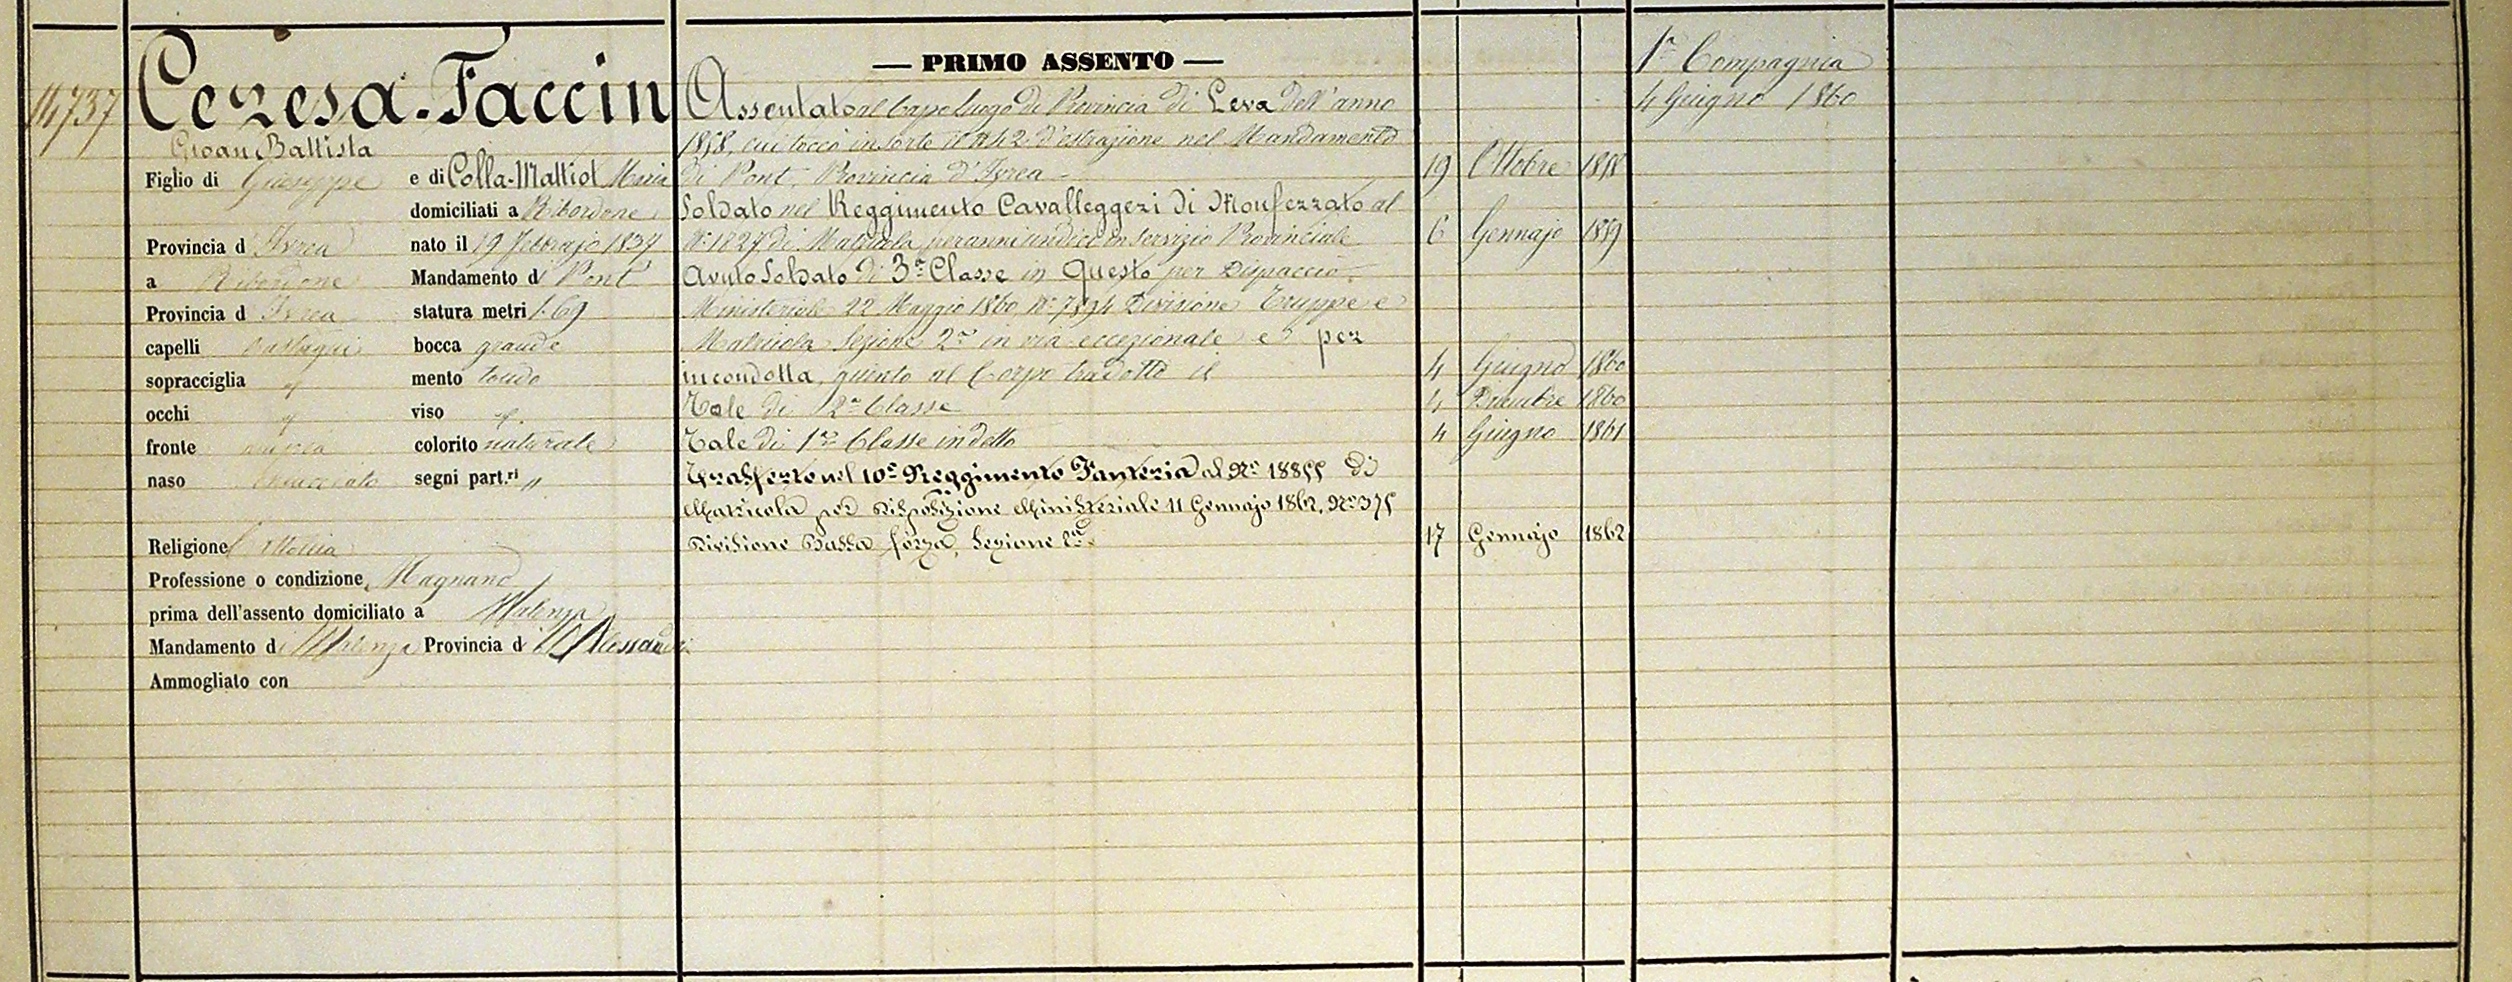 14737
Ceresa-Faccin
Giovan Battista
Figlio di Giuseppe e di Colla-Mattiot Maria
domiciliati a Ribordone
Provincia d'Ivrea nato il 19 Febbrajo 1837
a Ribordone Mandamento di Pont
Provincia d'Ivrea statura metri 1.69
capelli castagni bocca grande
sopracciglia mento tondo
occhi viso
fronte colorito naturale
naso segni part.ri "
Religione Cattolica
Professione o condizione Magnano
prima dell'assento domiciliato a Valenza
Mandamento di Valenza Provincia d'Alessandria
Ammogliato con
— PRIMO ASSENTO —
Assentato al Capo luogo di Provincia di Leva dell'anno
1858, cui toccò in sorte il N° 42 d'estrazione nel Mandamento
di Pont, Provincia d'Ivrea 19 Ottobre 1858
Soldato nel Reggimento Cavalleggeri di Monferrato al
N° 1827 di Matricola per anni undici in servizio Provinciale 6 Gennajo 1859
Avuto Soldato di 3ª Classe in Questo per Dispaccio
Ministeriale 22 Maggio 1860 N° 7894 Divisione Truppe e
Matricola Sezione 2ª in via eccezionale e per
incondotta, giunto al Corpo tradotto il 4 Giugno 1860
Tale di 2ª Classe 4 Dicembre 1860
Tale di 1ª Classe in detto 4 Giugno 1861
Trasferto nel 10° Reggimento Fanteria al N° 18855 di
Matricola per Disposizione Ministeriale 11 Gennajo 1862, N° 375
Divisione Bassa forza, Sezione 17 Gennajo 1862
1ª Compagnia
4 Giugno 1860